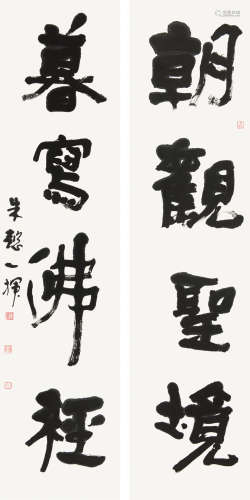 朝觀聖境
暮寫佛經
朱懿一揮